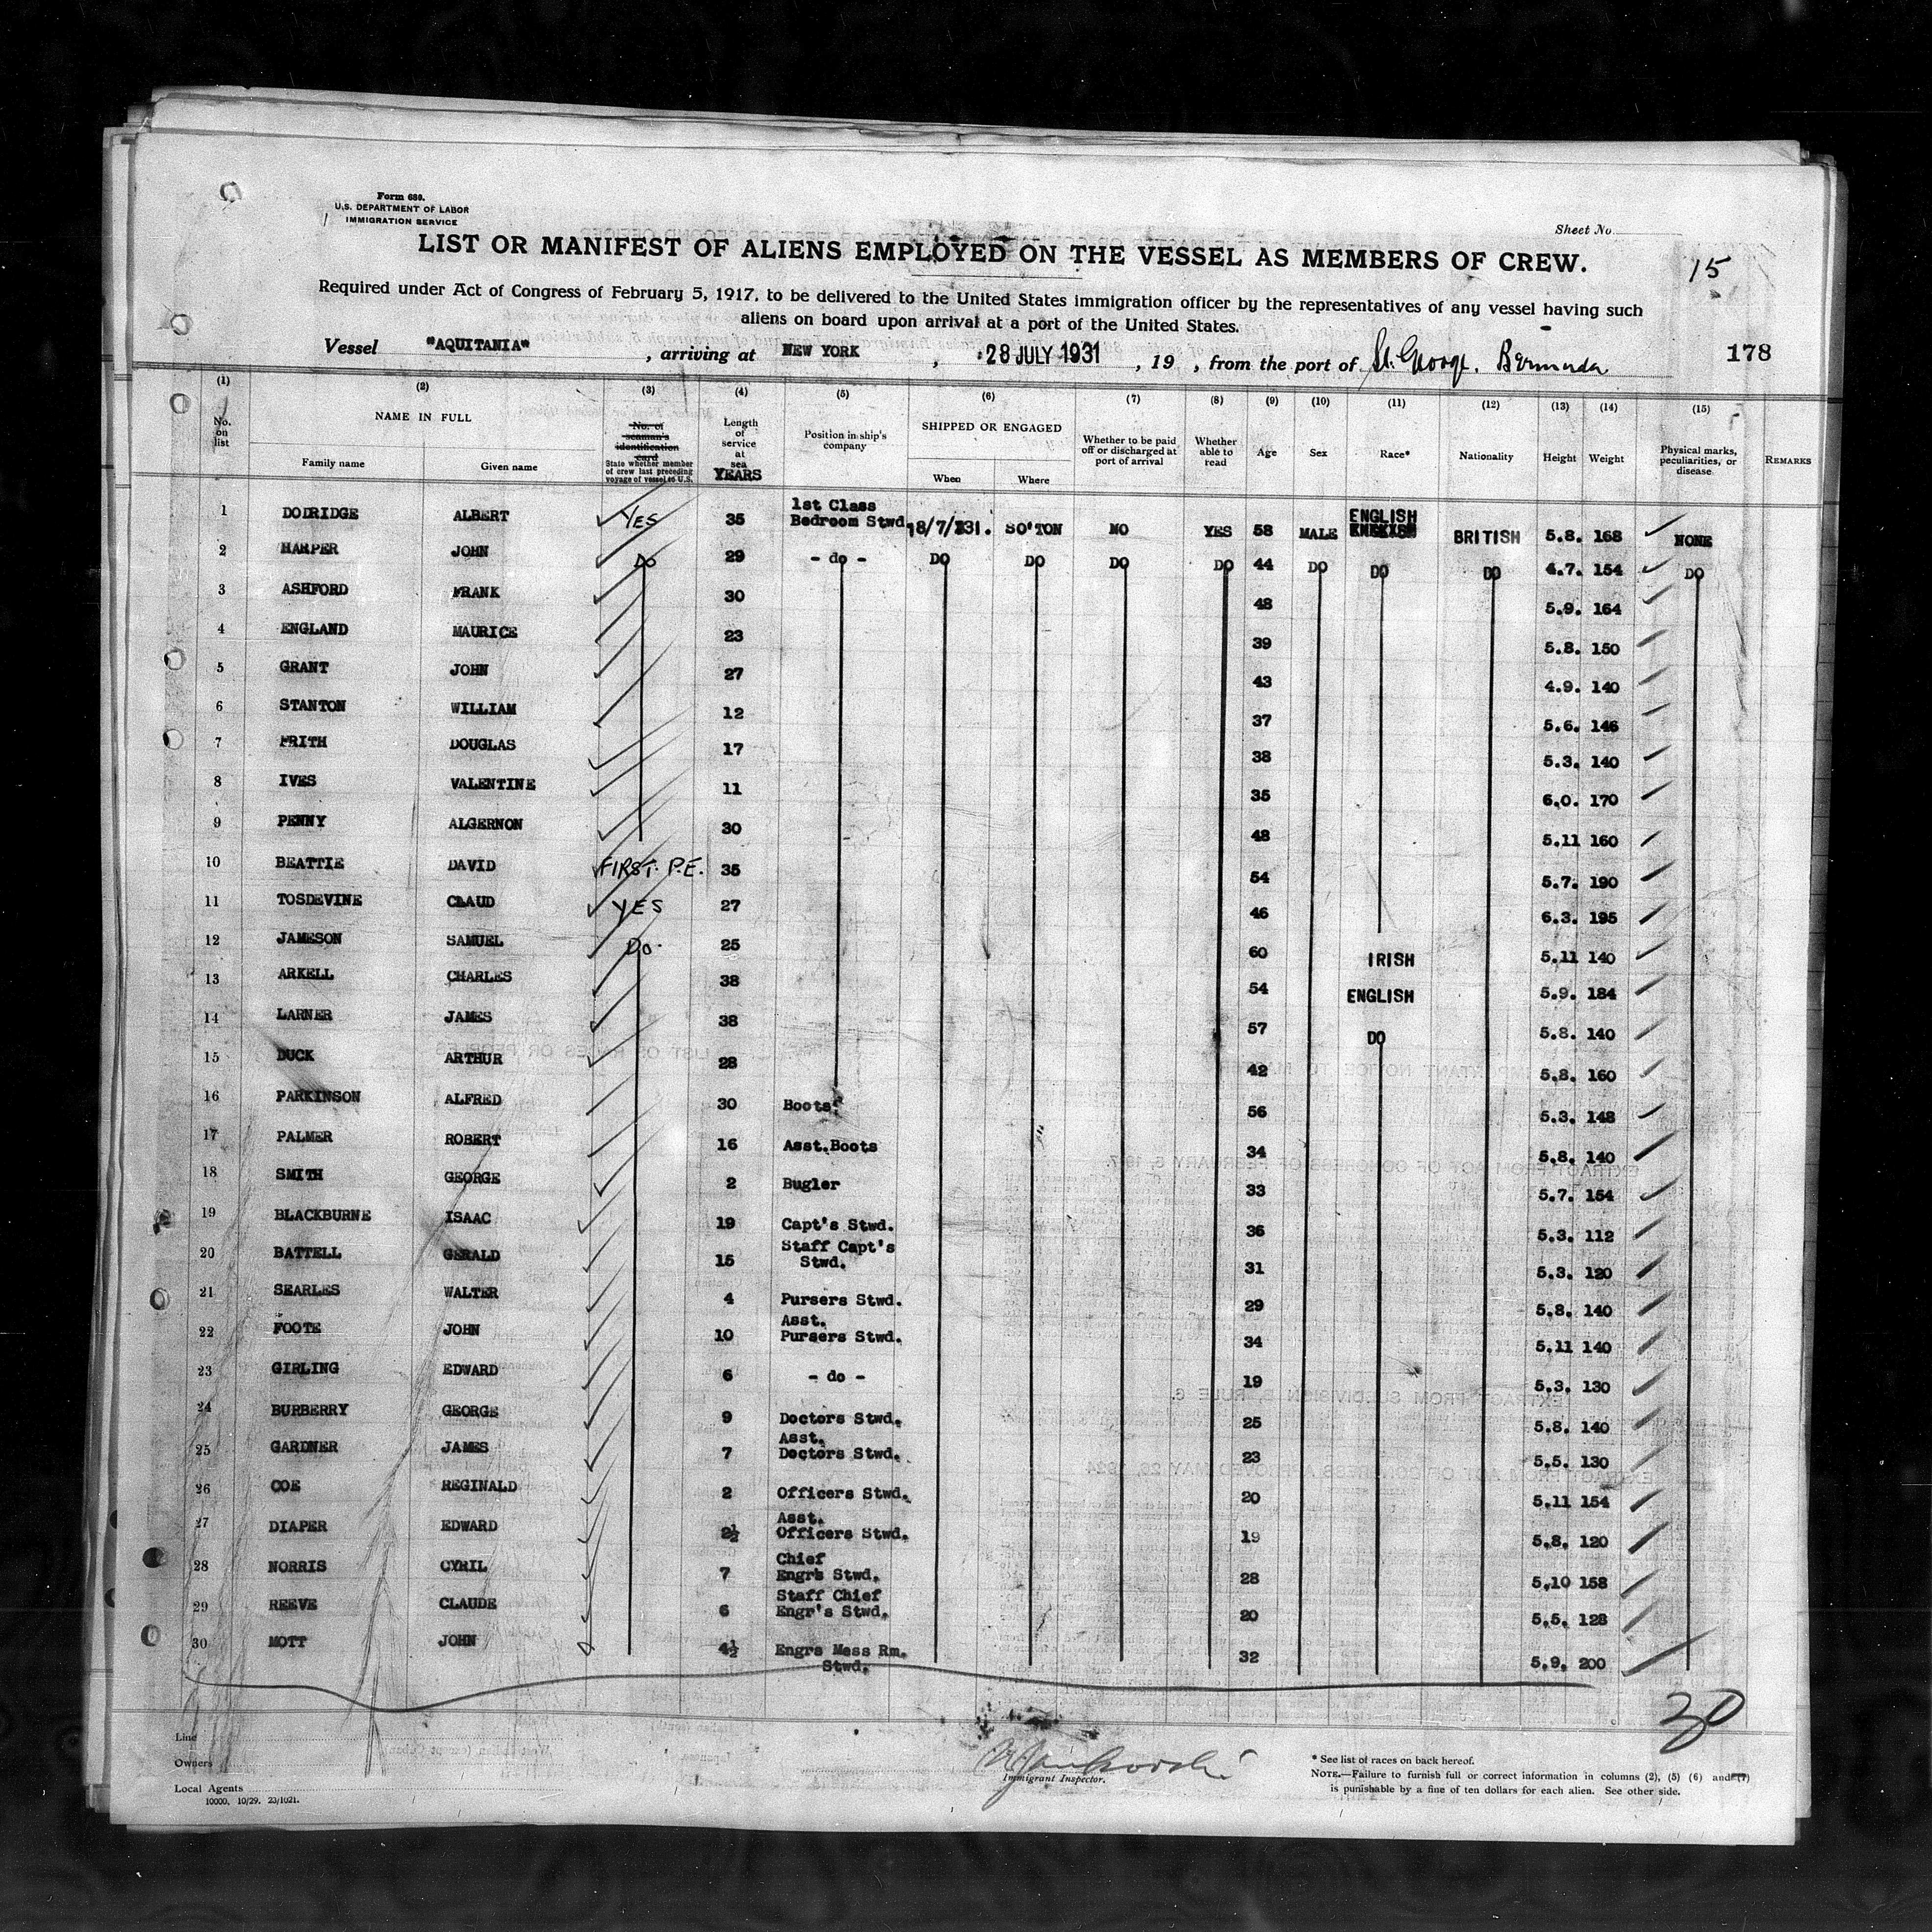 Form 680.
U.S. DEPARTMENT OF LABOR
IMMIGRATION SERVICE
Sheet No.
LIST OR MANIFEST OF ALIENS EMPLOYED ON THE VESSEL AS MEMBERS OF CREW.
15
Required under Act of Congress of February 5, 1917, to be delivered to the United States immigration officer by the representatives of any vessel having such
aliens on board upon arrival at a port of the United States.
Vessel "AQUITANIA", arriving at NEW YORK, 28 JULY 1931, 19 , from the port of St. George. Bermuda
178
(1) (2) (3) (4) (5) (6) (7) (8) (9) (10) (11) (12) (13) (14) (15)
No. on list NAME IN FULL Family name Given name No. of seaman's identification card State whether member of crew last preceding voyage of vessel to U.S. Length of service at sea YEARS Position in ship's company SHIPPED OR ENGAGED When Where Whether to be paid off or discharged at port of arrival Whether able to read Age Sex Race* Nationality Height Weight Physical marks, peculiarities, or disease REMARKS
1 DODRIDGE ALBERT YES 35 1st Class Bedroom Stwd. 18/7/31. SO'TON NO YES 58 MALE ENGLISH BRITISH 5.8. 168 NONE
2 HARPER JOHN DO 29 - do - DO DO DO DO 44 DO DO DO 4.7. 154 DO
3 ASHFORD FRANK 30 48 5.9. 164
4 ENGLAND MAURICE 23 39 5.8. 150
5 GRANT JOHN 27 43 4.9. 140
6 STANTON WILLIAM 12 37 5.6. 146
7 FRITH DOUGLAS 17 38 5.3. 140
8 IVES VALENTINE 11 35 6.0. 170
9 PENNY ALGERNON 30 48 5.11 160
10 BEATTIE DAVID FIRST. P.E. 35 54 5.7. 190
11 TOSDEVINE CLAUD YES 27 46 6.3. 195
12 JAMESON SAMUEL DO. 25 60 IRISH 5.11 140
13 ARKELL CHARLES 38 54 ENGLISH 5.9. 184
14 LARNER JAMES 38 57 DO 5.8. 140
15 DUCK ARTHUR 28 42 5.8. 160
16 PARKINSON ALFRED 30 Boots 56 5.3. 148
17 PALMER ROBERT 16 Asst.Boots 34 5.8. 140
18 SMITH GEORGE 2 Bugler 33 5.7. 154
19 BLACKBURNE ISAAC 19 Capt's Stwd. 36 5.3. 112
20 BATTELL GERALD 15 Staff Capt's Stwd. 31 5.3. 120
21 SEARLES WALTER 4 Pursers Stwd. 29 5.8. 140
22 FOOTE JOHN 10 Asst. Pursers Stwd. 34 5.11 140
23 GIRLING EDWARD 6 - do - 19 5.3. 130
24 BURBERRY GEORGE 9 Doctors Stwd. 25 5.8. 140
25 GARDNER JAMES 7 Asst. Doctors Stwd. 23 5.5. 130
26 COE REGINALD 2 Officers Stwd. 20 5.11 154
27 DIAPER EDWARD 2½ Asst. Officers Stwd. 19 5.8. 120
28 NORRIS CYRIL 7 Chief Engrs Stwd. 28 5.10 158
29 REEVE CLAUDE 6 Staff Chief Engr's Stwd. 20 5.5. 128
30 MOTT JOHN 4½ Engrs Mess Rm. Stwd. 32 5.9. 200
30
Line
Owners
Local Agents
10000, 10/29. 23/1021.
Immigrant Inspector.
* See list of races on back hereof.
NOTE.—Failure to furnish full or correct information in columns (2), (5) (6) and (7)
is punishable by a fine of ten dollars for each alien. See other side.